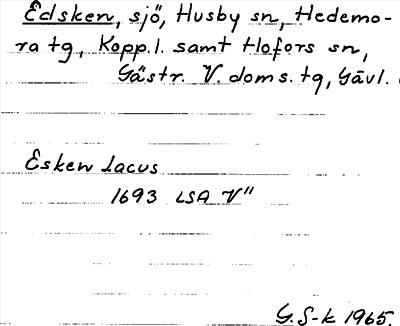 Edsken, sjö, Husby sn, Hedemo-
ra tg, Kopp.l. samt Hofors sn,
Gästr. V. doms. tg, Gävl.
Esken Lacus
1693 LSA V"
G. S-k 1965.